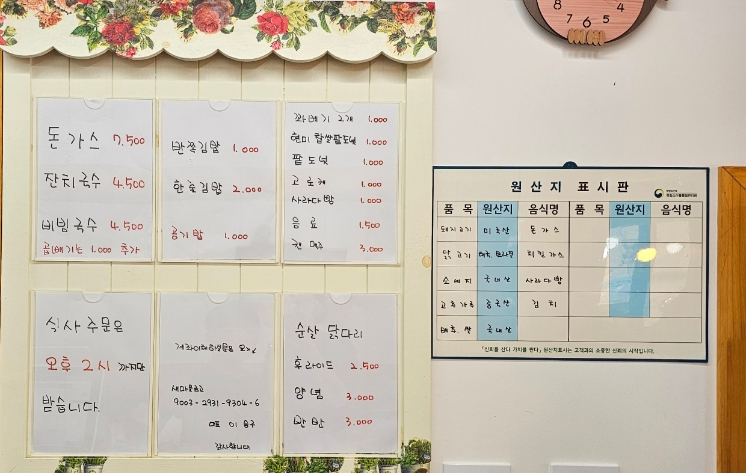 돈가스 7.500
잔치국수 4.500
비빔국수 4.500
곱빼기는 1.000 추가
반쪽김밥 1.000
한줄김밥 2.000
공기밥 1.000
꽈배기 2개 1.000
현미 찹쌀팥도넛 1.000
팥도넛 1.000
고로케 1.000
사라다빵 1.000
음료 1.500
캔맥주 3.000
식사 주문은
오후 2시 까지만
받습니다.
새마을금고
9003-2931-9304-6
감사합니다
순살 닭다리
후라이드 2.500
양념 3.000
반반 3.000
7 6 5
원산지 표시판
품목 원산지 음식명 품목 원산지 음식명
돼지고기 미국산 돈가스
닭고기 치킨가스
소세지 국내산 사라다빵
고추가루 중국산 김치
배추, 쌀 국내산
「신뢰를 산다 가치를 판다」 원산지표시는 고객과의 소중한 신뢰의 시작입니다.